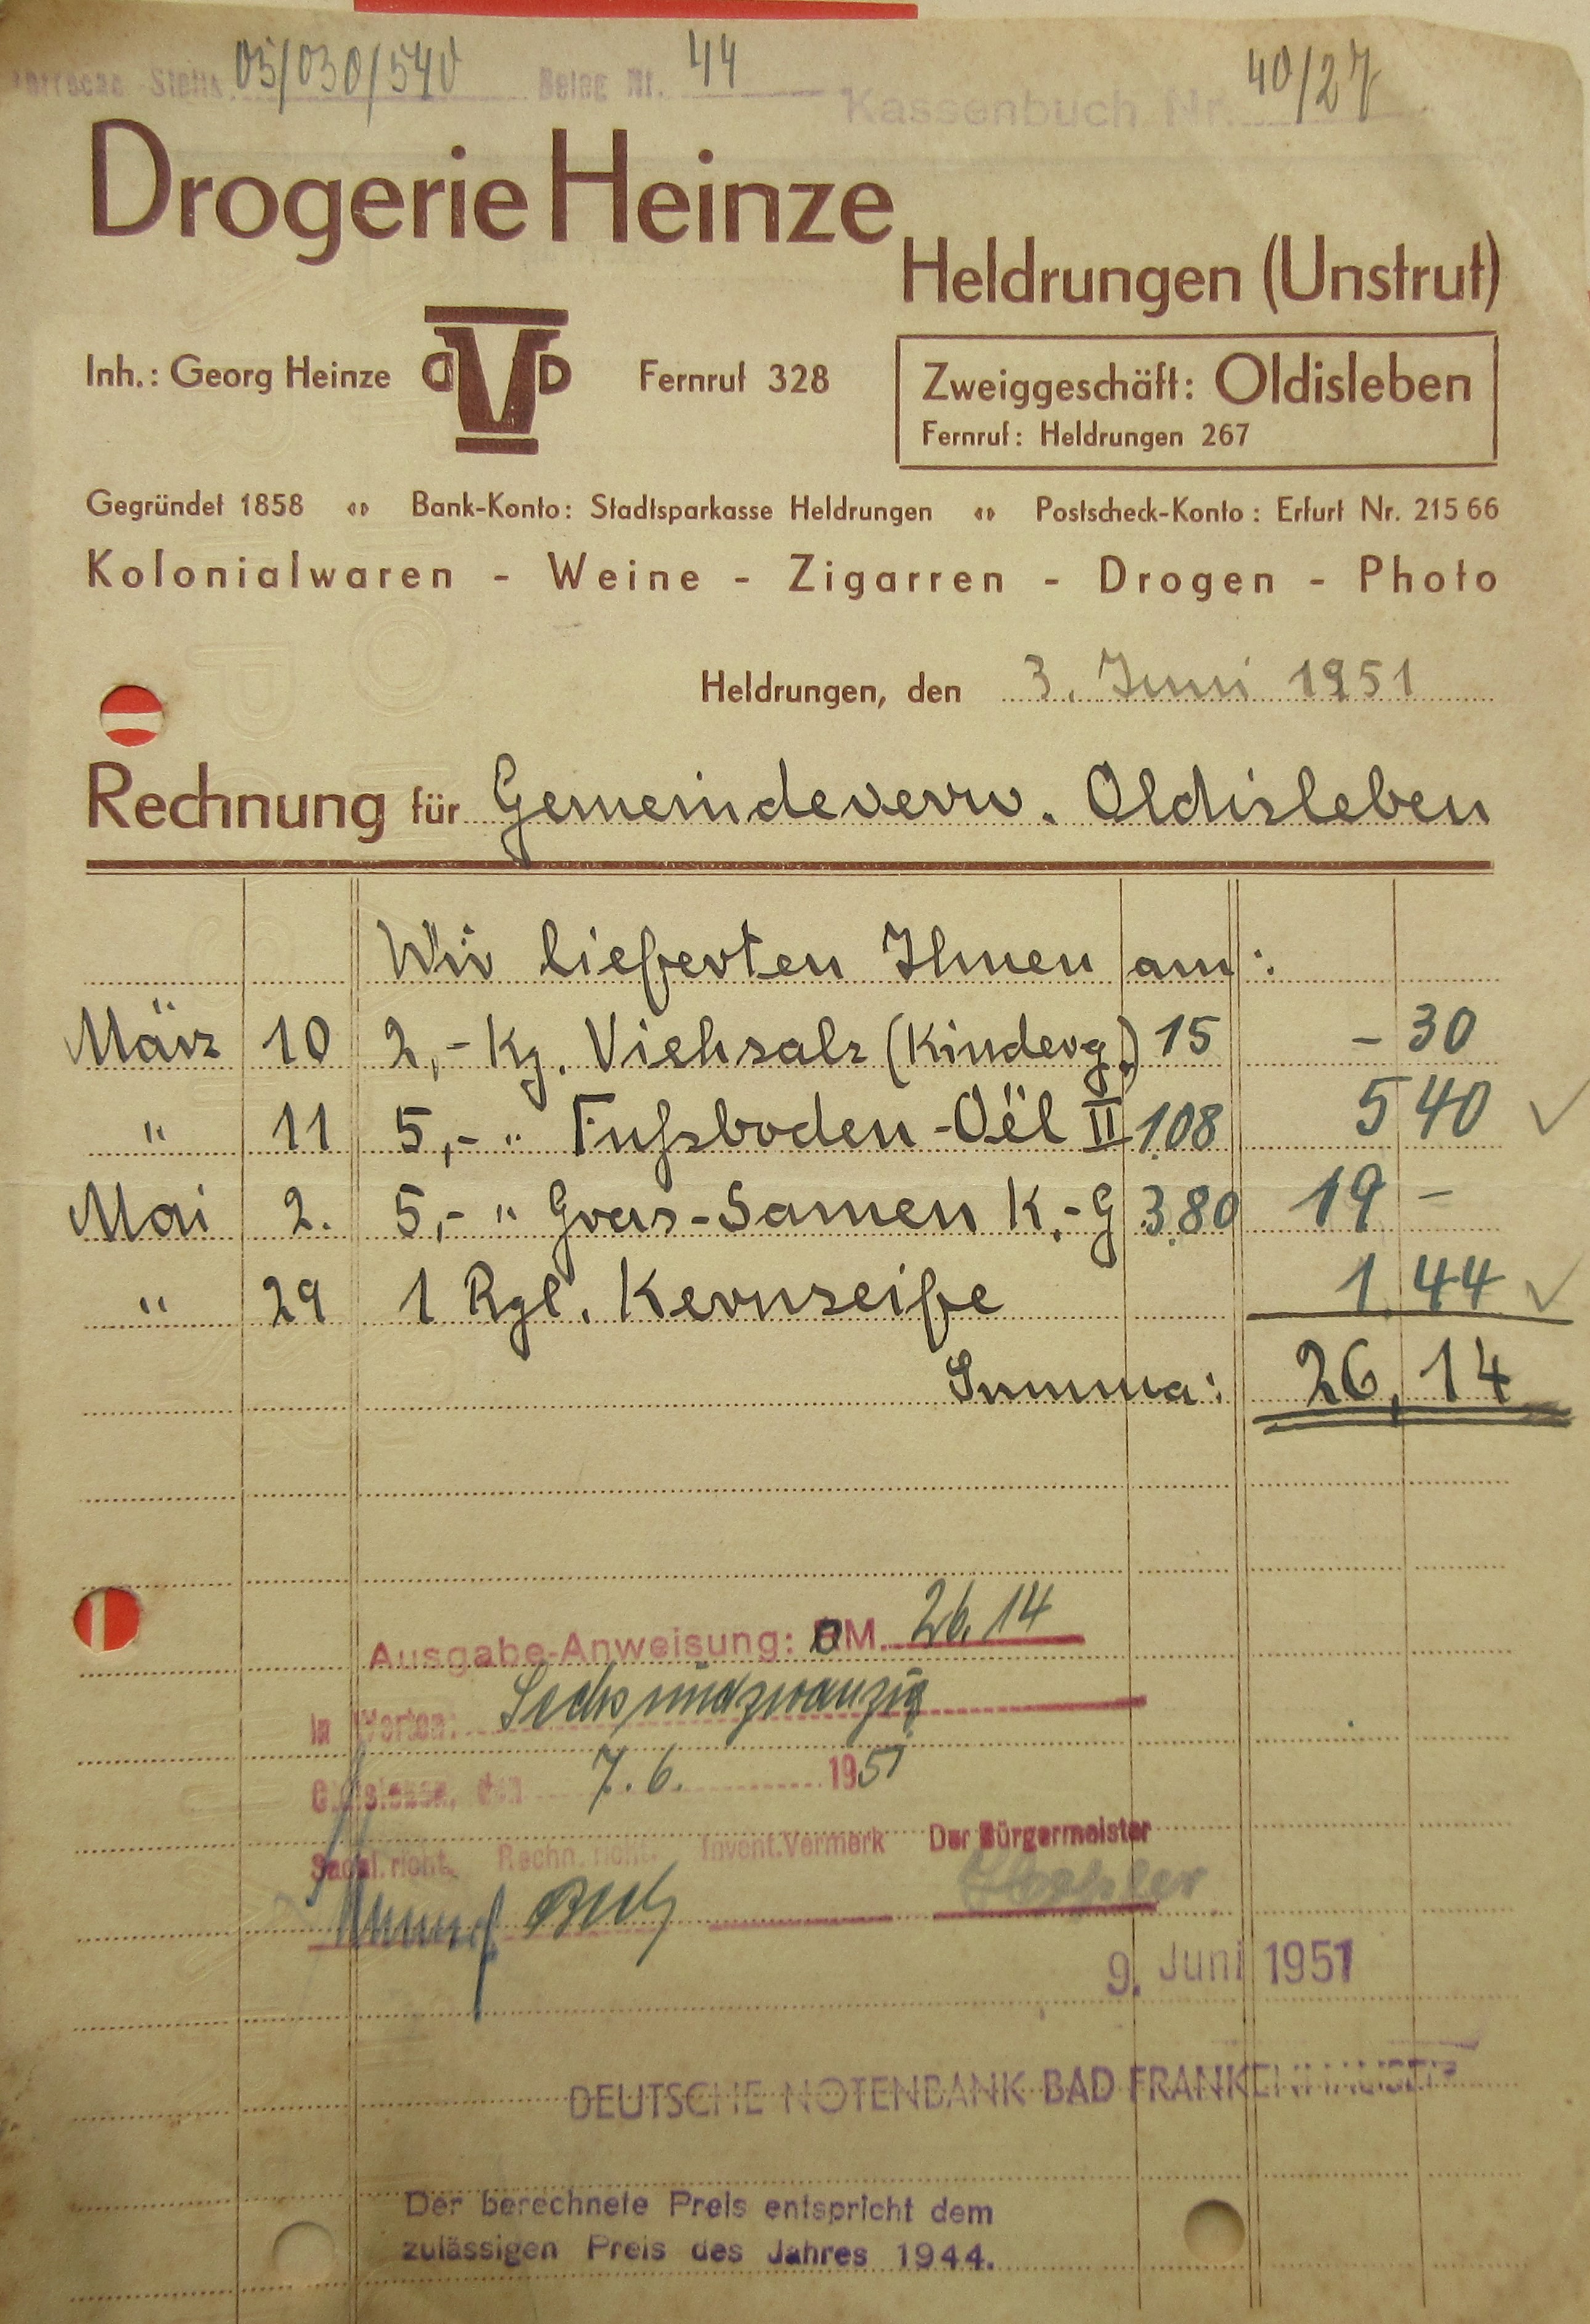 Stelle 05/030/540 Beleg Nr. 44 Kassenbuch Nr. 40/27
Drogerie Heinze
Heldrungen (Unstrut)
Inh.: Georg Heinze DVD Fernruf 328
Zweiggeschäft: Oldisleben
Fernruf: Heldrungen 267
Gegründet 1858 Bank-Konto: Stadtsparkasse Heldrungen Postscheck-Konto: Erfurt Nr. 215 66
Kolonialwaren - Weine - Zigarren - Drogen - Photo
Heldrungen, den 3. Juni 1951
Rechnung für Gemeindeverw. Oldisleben
Wir lieferten Ihnen am:
März 10 2,- Kg. Viehsalz (Kinderg.) 15 - 30
" 11 5,- " Fußboden-Oël II 1.08 5 40 ✓
Mai 2. 5,- " Gras-Samen K.-G 3.80 19 -
" 29 1 Rgl. Kernseife 1 44 ✓
Summa: 26,14
Ausgabe-Anweisung: DM. 26.14
In Worten: Sechsundzwanzig
Oldisleben, den 7.6. 1951
Sachl. richt. Rechn. richt. Invent.Vermerk Der Bürgermeister
9. Juni 1951
DEUTSCHE NOTENBANK BAD FRANKENHAUSEN
Der berechnete Preis entspricht dem
zulässigen Preis des Jahres 1944.